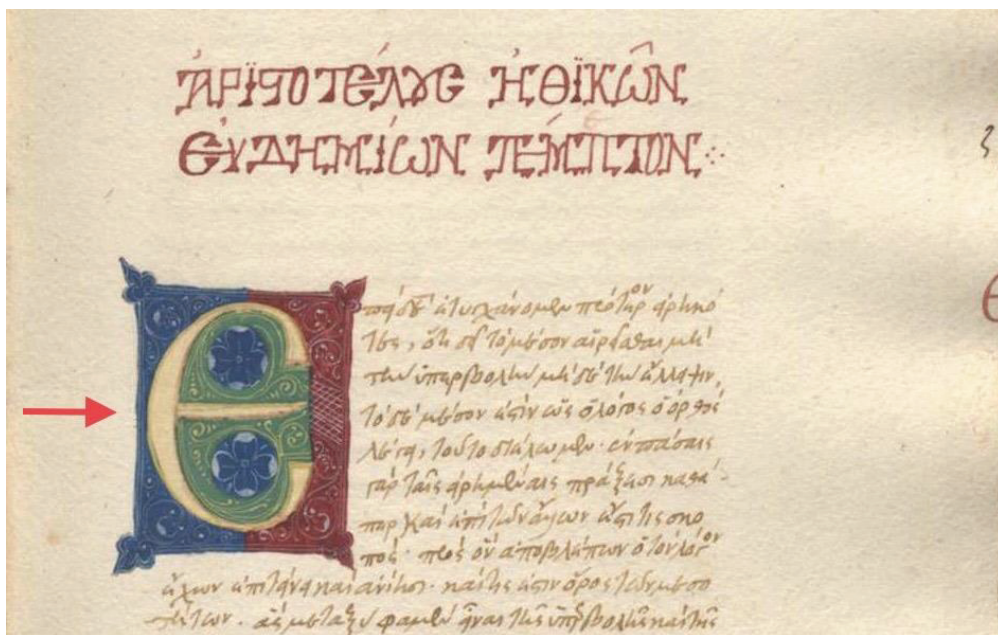 ἈΡΙΣΤΟΤΈΛΟΥΣ ἨΘΪΚῶΝ
ΕὐΔΗΜΊΩΝ ΠΈΜΠΤΟΝ
Ἐπεὶ δὲ τυγχάνομεν πρότερον εἰρηκό
τες, ὅτι δεῖ τὸ μέσον αἱρεῖσθαι μὴ
τὴν ὑπερβολὴν μηδὲ τὴν ἔλλειψιν,
τὸ δὲ μέσον ἐστὶν ὡς ὁ λόγος ὁ ὀρθὸς
λέγει, τοῦτο διέλωμεν· ἐν πάσαις
γὰρ ταῖς εἰρημέναις πράξεσι καθά
περ καὶ ἐπὶ τῶν ἄλλων ἔστι τις σκο
πός· πρὸς ὃν ἀποβλέπων ὁ τὸν λόγον
ἔχων ἐπιτείνει καὶ ἀνίησι· καί τις ἐστὶν ὅρος τῶν μεσο
τήτων· ἃς μεταξύ φαμεν εἶναι τῆς ὑπερβολῆς καὶ τῆς